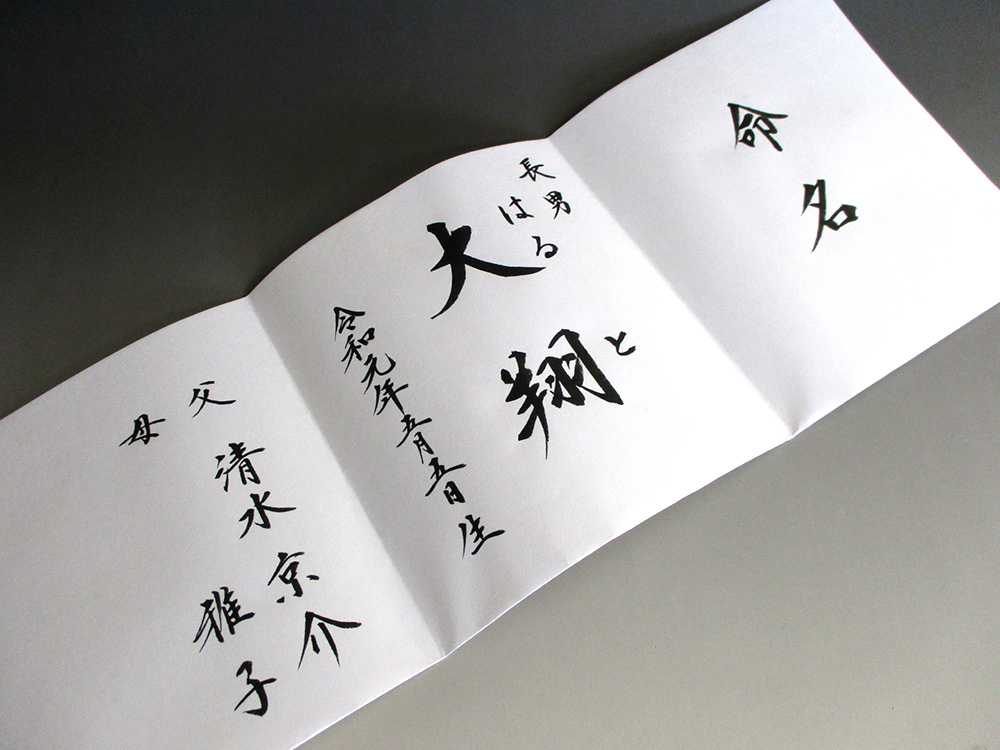 命名
長男
はると
大翔
令和元年五月五日生
父 清水京介
母 雅子